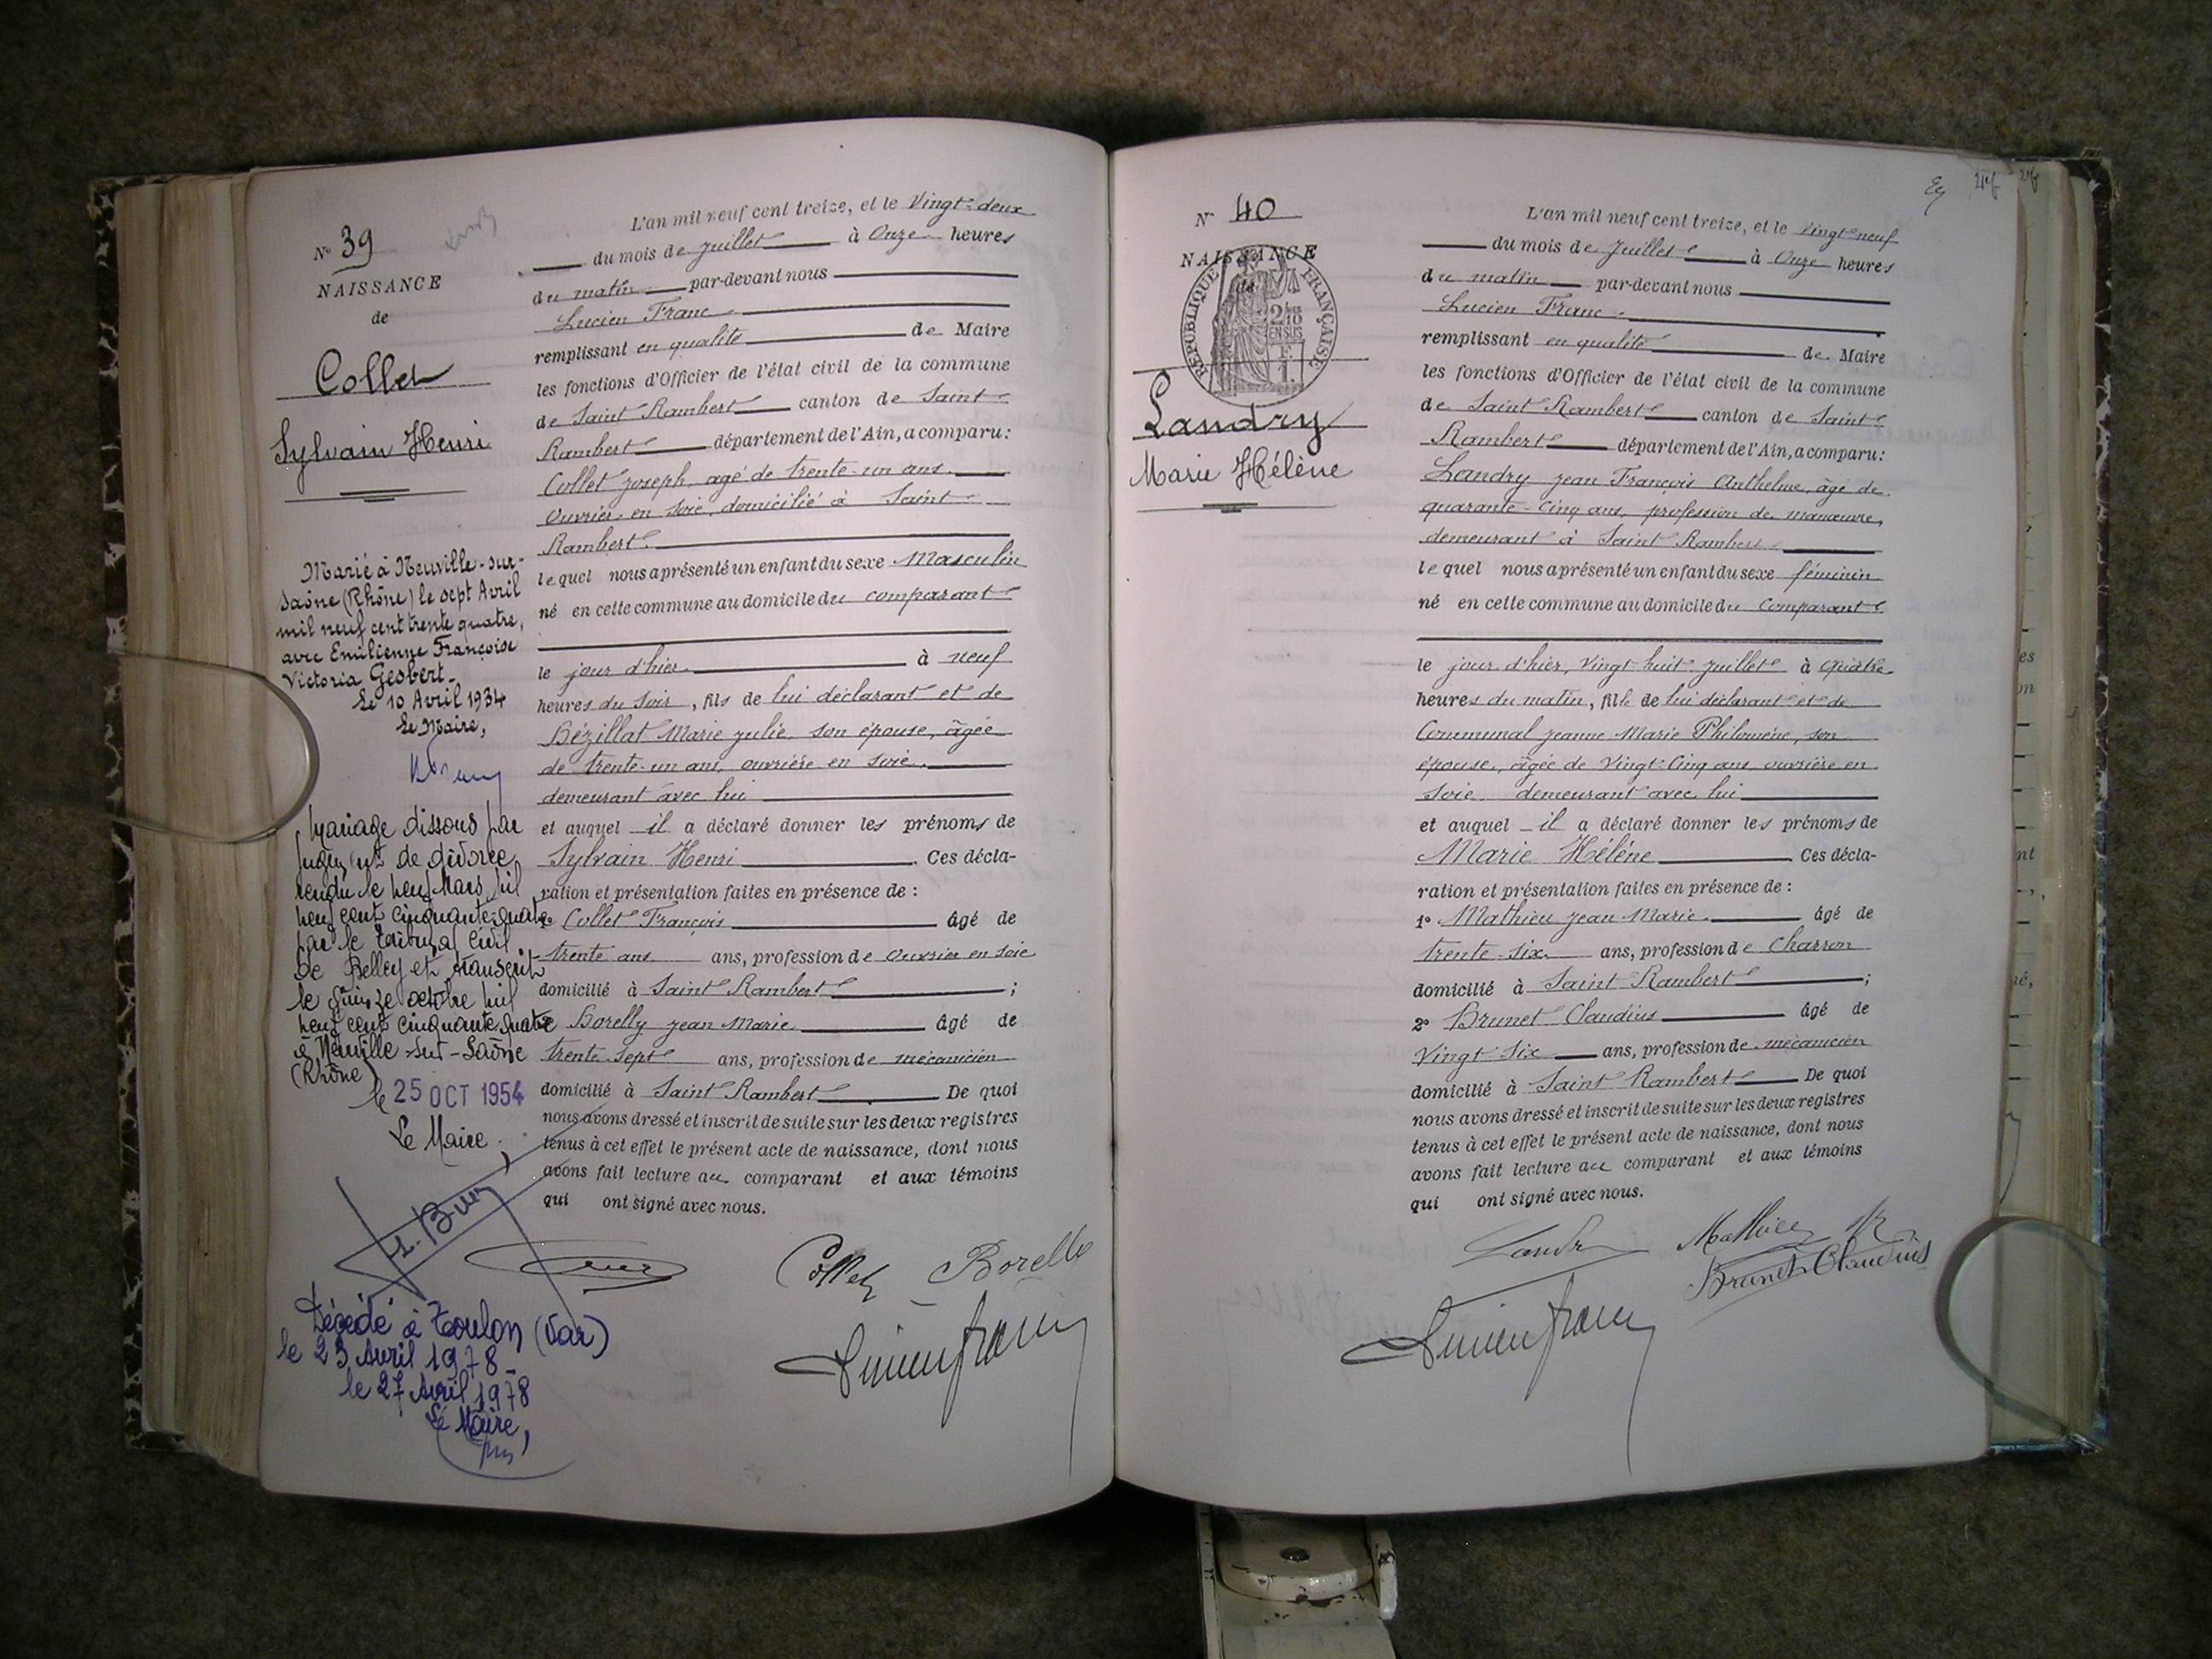 N° 39
NAISSANCE
de
Collet
Sylvain Henri
Marié à Neuville-sur-
Saône (Rhône) le sept Avril
mil neuf cent trente quatre,
avec Emilienne Françoise
Victoria Gesbert.
Le 10 Avril 1934
Le Maire,
Mariage dissous par
jugement de divorce
rendu le neuf Mars mil
neuf cent cinquante-quatre
par le tribunal Civil
de Belley et transcrit
le quinze octobre mil
neuf cent cinquante quatre
à Neuville-sur-Saône
(Rhône)
le 25 OCT 1954
Le Maire,
Décédé à Toulon (Var)
le 23 Avril 1978_
le 27 Avril 1978
Le Maire,
L'an mil neuf cent treize, et le Vingt-deux
du mois de Juillet à Onze heures
du matin par-devant nous
Lucien Franc
remplissant en qualité de Maire
les fonctions d'Officier de l'état civil de la commune
de Saint Rambert canton de Saint
Rambert département de l'Ain, a comparu:
Collet Joseph, agé de trente-un ans
Ouvrier en soie, domicilié à Saint
Rambert
lequel nous a présenté un enfant du sexe Masculin
né en cette commune au domicile du comparant
le jour d'hier à neuf
heures du soir, fils de lui déclarant et de
Bézillat Marie Julie, son épouse, âgée
de trente-un ans, ouvrière en soie
demeurant avec lui
et auquel il a déclaré donner les prénoms de
Sylvain Henri. Ces décla-
ration et présentation faites en présence de :
1° Collet François âgé de
trente ans ans, profession de Ouvrier en soie
domicilié à Saint Rambert ;
2° Borelly Jean Marie âgé de
trente-sept ans, profession de mécanicien
domicilié à Saint Rambert. De quoi
nous avons dressé et inscrit de suite sur les deux registres
tenus à cet effet le présent acte de naissance, dont nous
avons fait lecture au comparant et aux témoins
qui ont signé avec nous.
Collet Borelly
Lucien Franc
N° 40
NAISSANCE
de
RÉPUBLIQUE FRANÇAISE
2/10
EN SUS
Landry
Marie Hélène
L'an mil neuf cent treize, et le vingt neuf
du mois de Juillet à Onze heures
du matin par-devant nous
Lucien Franc
remplissant en qualité de Maire
les fonctions d'Officier de l'état civil de la commune
de Saint Rambert canton de Saint
Rambert département de l'Ain, a comparu:
Landry Jean François Anthelme, âgé de
quarante-cinq ans, profession de manœuvre,
demeurant à Saint Rambert
lequel nous a présenté un enfant du sexe féminin
né en cette commune au domicile du Comparant
le jour d'hier, Vingt huit Juillet à quatre
heures du matin, fille de lui déclarant et de
Communal Jeanne Marie Philomène, son
épouse, âgée de Vingt-Cinq ans, ouvrière en
soie, demeurant avec lui
et auquel il a déclaré donner les prénoms de
Marie Hélène. Ces décla-
ration et présentation faites en présence de :
1° Mathieu Jean Marie âgé de
trente-six ans, profession de Charron
domicilié à Saint Rambert ;
2° Brunet Claudius âgé de
Vingt Six ans, profession de mécanicien
domicilié à Saint Rambert. De quoi
nous avons dressé et inscrit de suite sur les deux registres
tenus à cet effet le présent acte de naissance, dont nous
avons fait lecture au comparant et aux témoins
qui ont signé avec nous.
Landry Mathieu
Brunet Claudius
Lucien Franc